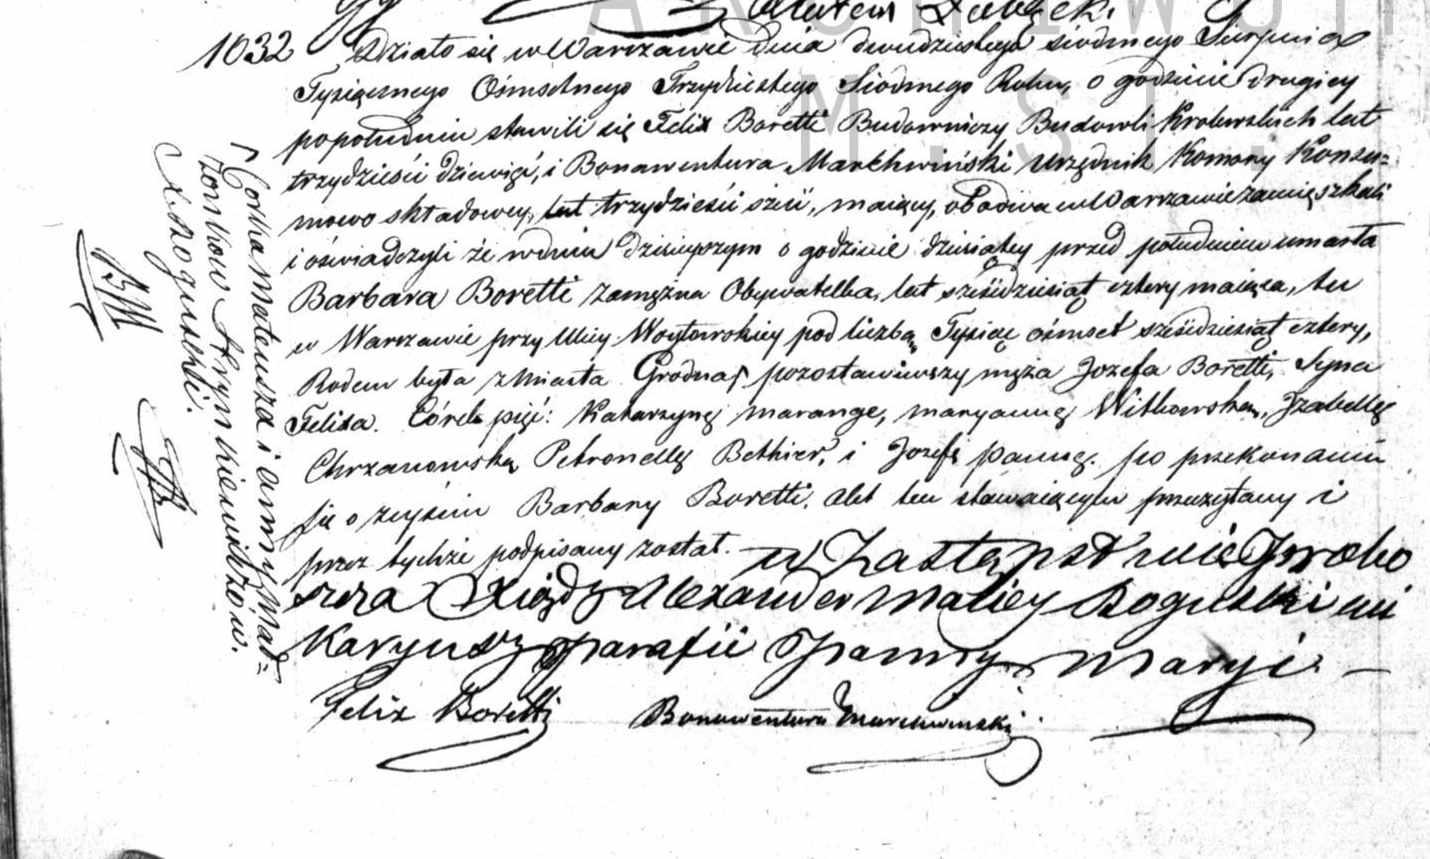 1032
Działo się w Warszawie dnia dwudziestego siodmego Sierpnia
Tysiącznego Ośmsetnego Trzydziestego Siodmego Roku, o godzinie drugiey
popołudniu stawili się Felix Boretti Budowniczy Budowli Krolewskich lat
trzydzieści dziewięć, i Bonawentura Marchwiński Urzędnik Komory Konsu=
mowo składowey, lat trzydzieści sześć, maiący, obadwa w Warszawie zamięszkali
i oświadczyli że w dniu dzisieyszym o godzinie dziesiątey przed południem umarła
Barbara Boretti zamężna Obywatelka, lat sześćdziesiąt cztery maiąca, tu
w Warszawie przy Ulicy Woytowskiey pod liczbą Tysiąc ośmset sześćdziesiąt cztery,
Rodem była z Miasta Grodna, pozostawiwszy męża Jozefa Boretti, Syna
Felixa. Córek pięć: Katarzynę marange, maryannę Witkowską, Izabellę
Chrzanowską Petronellę Bethier, i Jozefę pannę. po przekonaniu
się o zeyściu Barbary Boretti. Akt ten stawaiącym przeczytany i
przez tychże podpisany został. w Zastępstwie Probo
szcza Xiądz Alexander Maciey Bogulski wi
karyusz parafii Panny Maryi
Felix Boretti Bonawentura Marchwinski
Corka Mateusza i anny Mał=
żonkow
z Rogulskich.